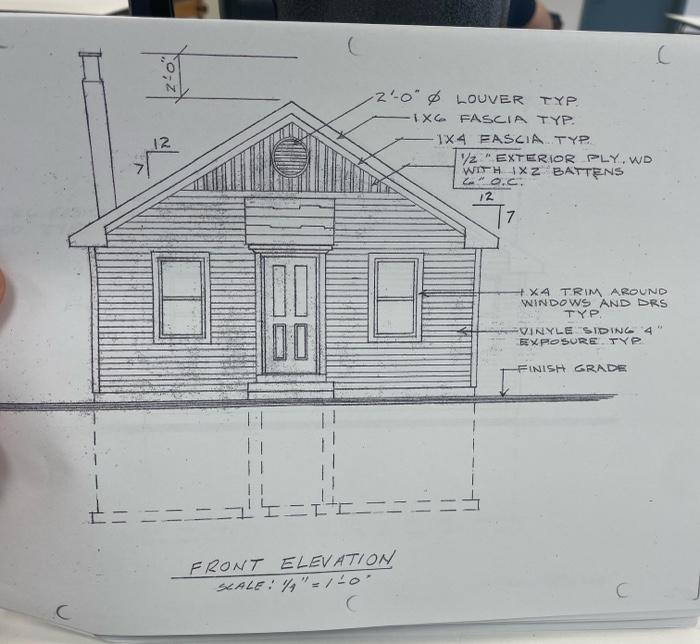 2'-0"
2'-0" Ø LOUVER TYP.
1X6 FASCIA TYP.
1X4 FASCIA TYP.
1/2" EXTERIOR PLY. WD
WITH 1X2 BATTENS
6" O.C.
12
7
12
7
1X4 TRIM AROUND
WINDOWS AND DRS
TYP.
VINYLE SIDING 4"
EXPOSURE TYP.
FINISH GRADE
FRONT ELEVATION
SCALE: 1/4" = 1'-0"